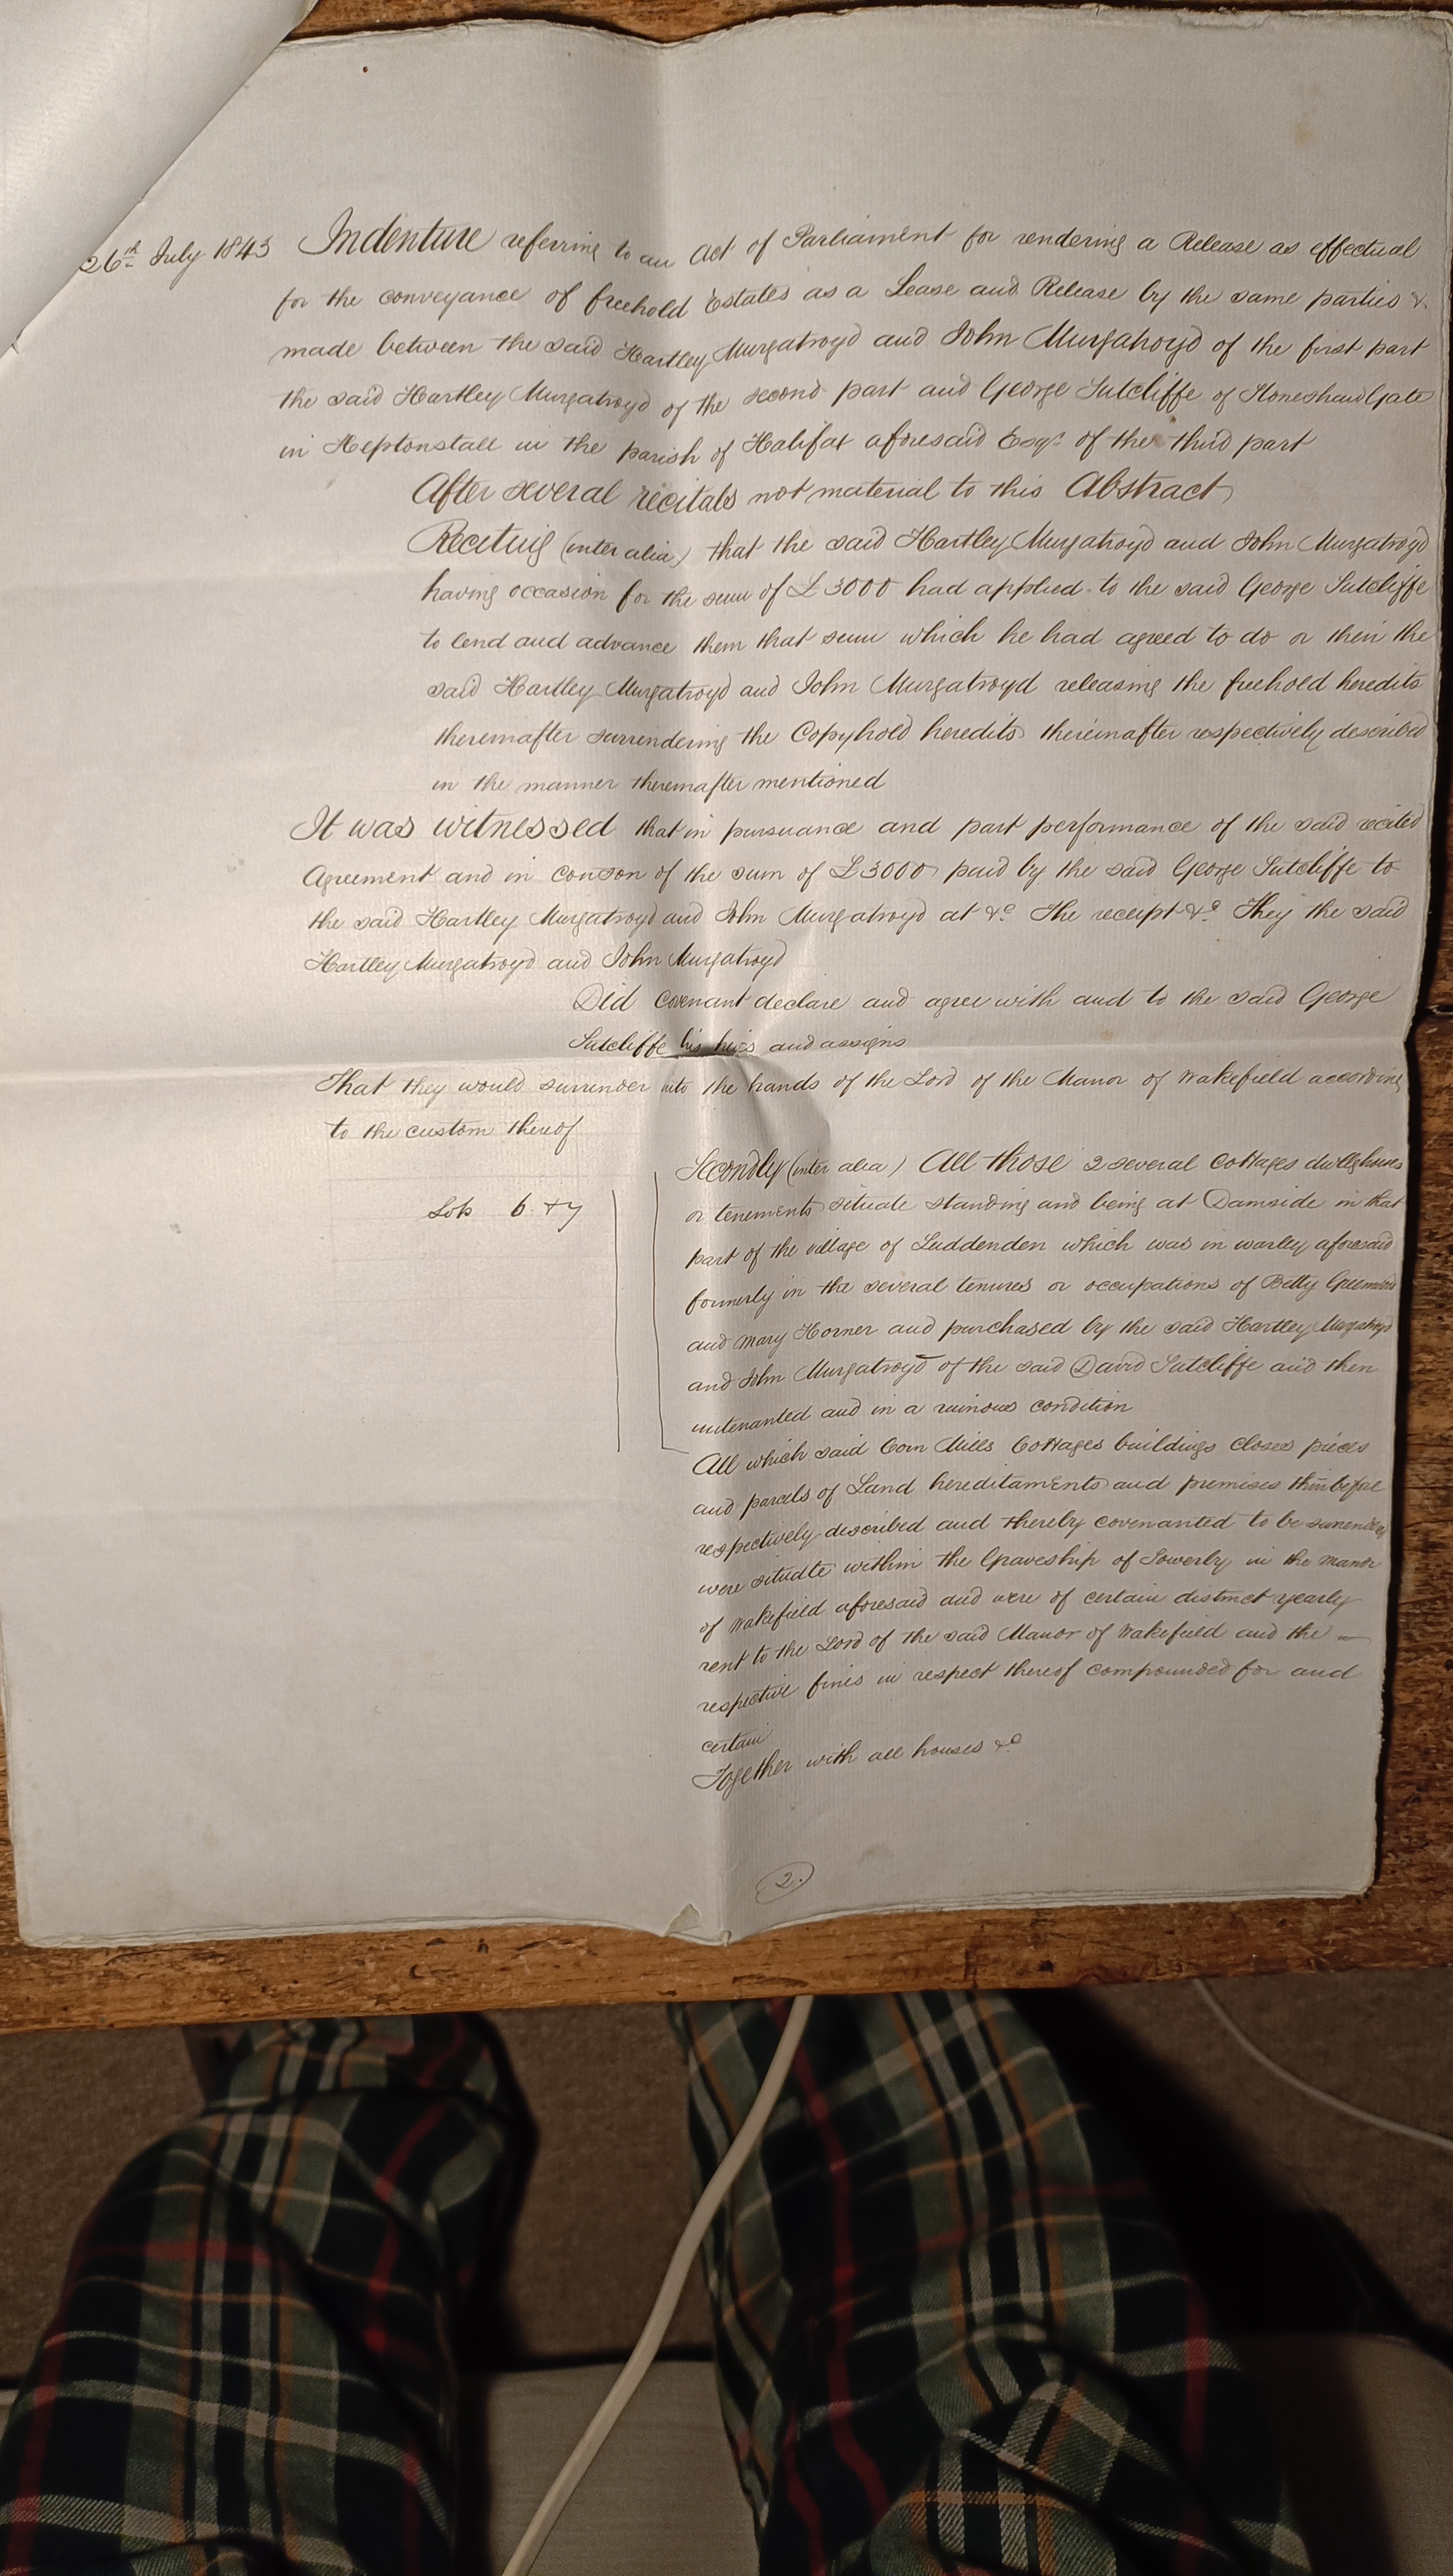 26th July 1843 Indenture referring to an Act of Parliament for rendering a Release as effectual
for the conveyance of freehold Estates as a Lease and Release by the same parties &
made between the said Hartley Murgatroyd and John Murgatroyd of the first part
the said Hartley Murgatroyd of the second part and George Sutcliffe of Stoneshaw Gate
in Heptonstall in the parish of Halifax aforesaid Esqr. of the third part
After several recitals not material to this Abstract
Reciting (inter alia) that the said Hartley Murgatroyd and John Murgatroyd
having occasion for the sum of £3000 had applied to the said George Sutcliffe
to lend and advance them that sum which he had agreed to do on their the
said Hartley Murgatroyd and John Murgatroyd releasing the freehold heredits
thereinafter surrendering the Copyhold heredits thereinafter respectively described
in the manner thereinafter mentioned
It was witnessed that in pursuance and part performance of the said recited
Agreement and in conson of the sum of £3000 paid by the said George Sutcliffe to
the said Hartley Murgatroyd and John Murgatroyd at &c The receipt &c They the said
Hartley Murgatroyd and John Murgatroyd
Did covenant declare and agree with and to the said George
Sutcliffe his heirs and assigns
That they would surrender into the hands of the Lord of the Manor of Wakefield according
to the custom thereof
Secondly (inter alia) All those 2 several Cottages dwellghouses
Lots 6 & 7
or tenements situate standing and being at Damside in that
part of the village of Luddenden which was in Warley aforesaid
formerly in the several tenures or occupations of Betty Greenwood
and Mary Horner and purchased by the said Hartley Murgatroyd
and John Murgatroyd of the said David Sutcliffe and then
untenanted and in a ruinous condition
All which said Corn Mills Cottages buildings closes pieces
and parcels of Land hereditaments and premises thinbefore
respectively described and thereby covenanted to be surrendered
were situate within the Graveship of Sowerby in the Manor
of Wakefield aforesaid and were of certain distinct yearly
rent to the Lord of the said Manor of Wakefield and the
respective fines in respect thereof compounded for and
certain
Together with all houses &c
2.